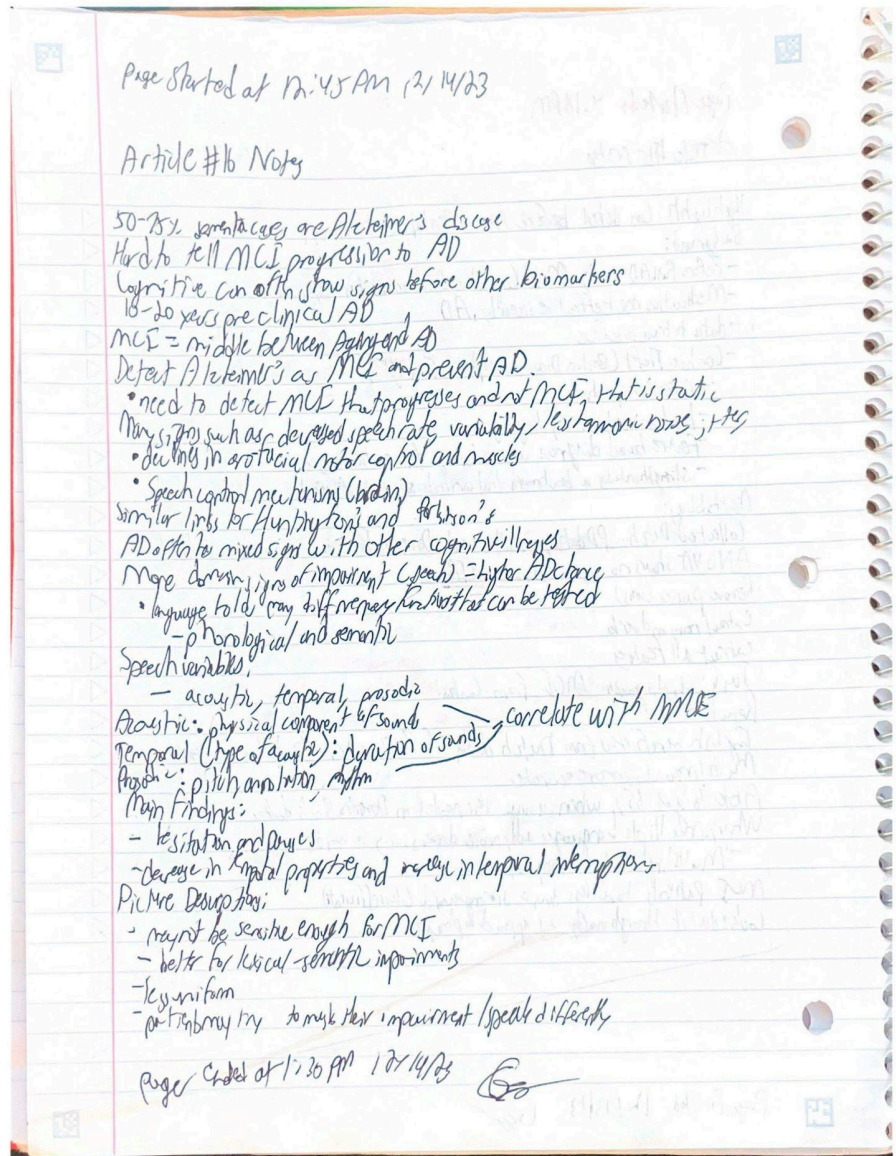 Page Started at 12:45 PM 12/14/23
Article #16 Notes
50-75% dementia cases are Alzheimer's disease
Hard to tell MCI progression to AD
Cognitive can often show signs before other biomarkers
10-20 years preclinical AD
MCI = middle between Aging and AD
Detect Alzheimer's as MCI and prevent AD.
• need to detect MCI that progresses and not MCI that is static
Many signs such as decreased speech rate, variability, less harmonic noise, jitter
• declines in orofacial motor control and muscles
• Speech control mechanisms (brain)
Similar links for Huntington's and Parkinson's
AD often has mixed signs with other cognitive illnesses
More domain signs of impairment (speech) = higher AD chance
• language holds many different that can be tested
- phonological and semantic
Speech variables:
- acoustic, temporal, prosodic
Acoustic: physical component of sounds
correlate with MMSE
Temporal (type of acoustic): duration of sounds
Prosodic: pitch, rhythm
Main Findings:
- hesitation and pauses
- decrease in temporal properties and increase in temporal interruptions
Picture Description:
- may not be sensitive enough for MCI
- better for lexical-semantic impairments
- less uniform
- patients may try to mask their impairment / speak differently
Page Ended at 1:30 PM 12/14/23